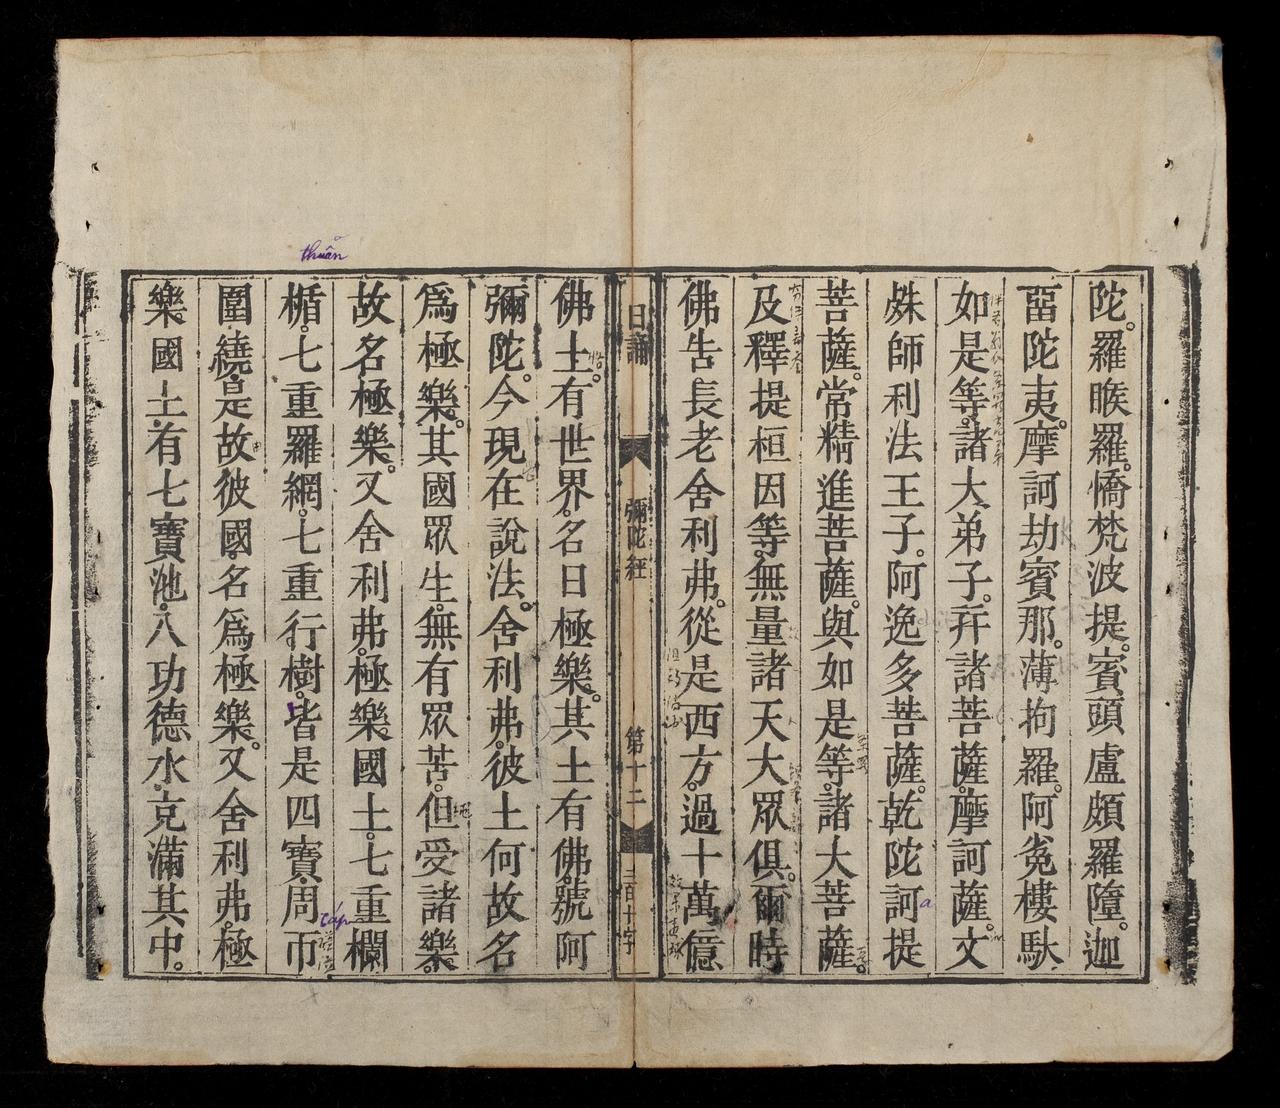 陀。羅睺羅。憍梵波提。賓頭盧頗羅墮。迦
畱陀夷。摩訶劫賓那。薄拘羅。阿㝹樓馱
如是等。諸大弟子。幷諸菩薩。摩訶薩。文
殊師利法王子。阿逸多菩薩。乾陀訶提
菩薩。常精進菩薩。與如是等。諸大菩薩。
及釋提桓因等。無量諸天大眾俱。爾時
佛告長老舍利弗。從是西方。過十萬億
日誦
彌陀經
第十二
三百十字
佛土。有世界。名曰極樂。其土有佛。號阿
彌陀。今現在說法。舍利弗。彼土何故名
爲極樂。其國眾生。無有眾苦。但受諸樂。
故名極樂。又舍利弗。極樂國土。七重欄
thuẫn
楯。七重羅網。七重行樹。皆是四寶。周帀
cáp
圍繞是故彼國名爲極樂。又舍利弗。極
樂國土有七寶池。八功德水。充滿其中。